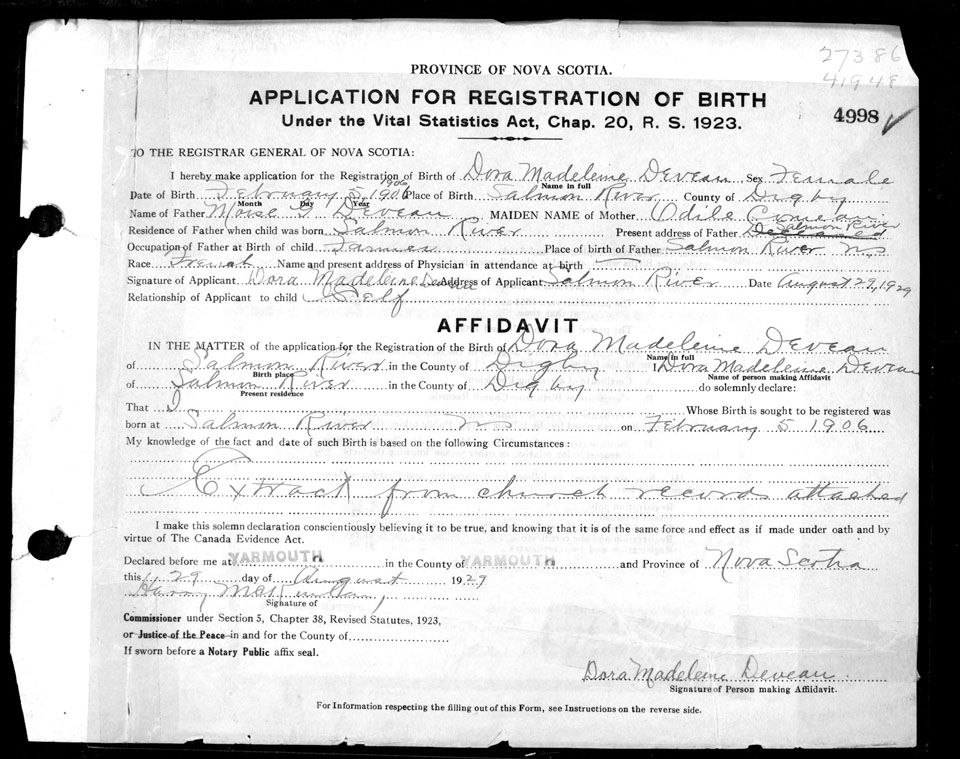 27386
41948
PROVINCE OF NOVA SCOTIA.
APPLICATION FOR REGISTRATION OF BIRTH
4998
Under the Vital Statistics Act, Chap. 20, R. S. 1923.
TO THE REGISTRAR GENERAL OF NOVA SCOTIA:
I hereby make application for the Registration of Birth of Dora Madeleine Deveau Sex Female
Name in full
1906
Date of Birth February 5, 1906 Place of Birth Salmon River County of Digby
Month Day Year
Name of Father Moise Deveau MAIDEN NAME of Mother Odile Comeau
Salmon River
Residence of Father when child was born Salmon River Present address of Father Deceased
Occupation of Father at Birth of child Farmer Place of birth of Father Salmon River N.S
Race French Name and present address of Physician in attendance at birth —
Signature of Applicant Dora Madeleine Deveau Address of Applicant Salmon River Date August 29, 1929
Relationship of Applicant to child Self
AFFIDAVIT
IN THE MATTER of the application for the Registration of the Birth of Dora Madeleine Deveau
Name in full
of Salmon River in the County of Digby I Dora Madeleine Deveau
Birth place Name of person making Affidavit
of Salmon River in the County of Digby do solemnly declare:
Present residence
That I Whose Birth is sought to be registered was
born at Salmon River NS on February 5 1906
My knowledge of the fact and date of such Birth is based on the following Circumstances:
Extract from church records attached
I make this solemn declaration conscientiously believing it to be true, and knowing that it is of the same force and effect as if made under oath and by
virtue of The Canada Evidence Act.
Declared before me at YARMOUTH in the County of YARMOUTH and Province of Nova Scotia
this 29 day of August 1929
Harry
Signature of
Commissioner under Section 5, Chapter 38, Revised Statutes, 1923,
or Justice of the Peace in and for the County of
If sworn before a Notary Public affix seal.
Dora Madeleine Deveau
Signature of Person making Affidavit.
For Information respecting the filling out of this Form, see Instructions on the reverse side.